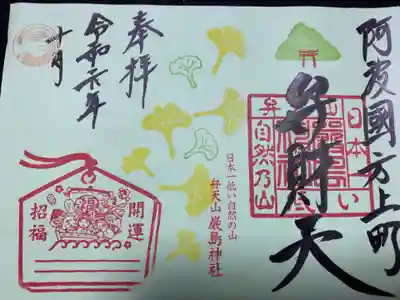 阿波國方上町
弁財天
日本一
弁自然乃山
日本一低い自然の山
弁天山厳島神社
奉拝
令和六年
十月
開運
招福